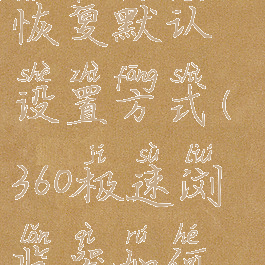 恢复默认
shè zhì fāng shì
设置方式(
jí sù liú
360极速浏
lǎn qì rú hé
览器如何